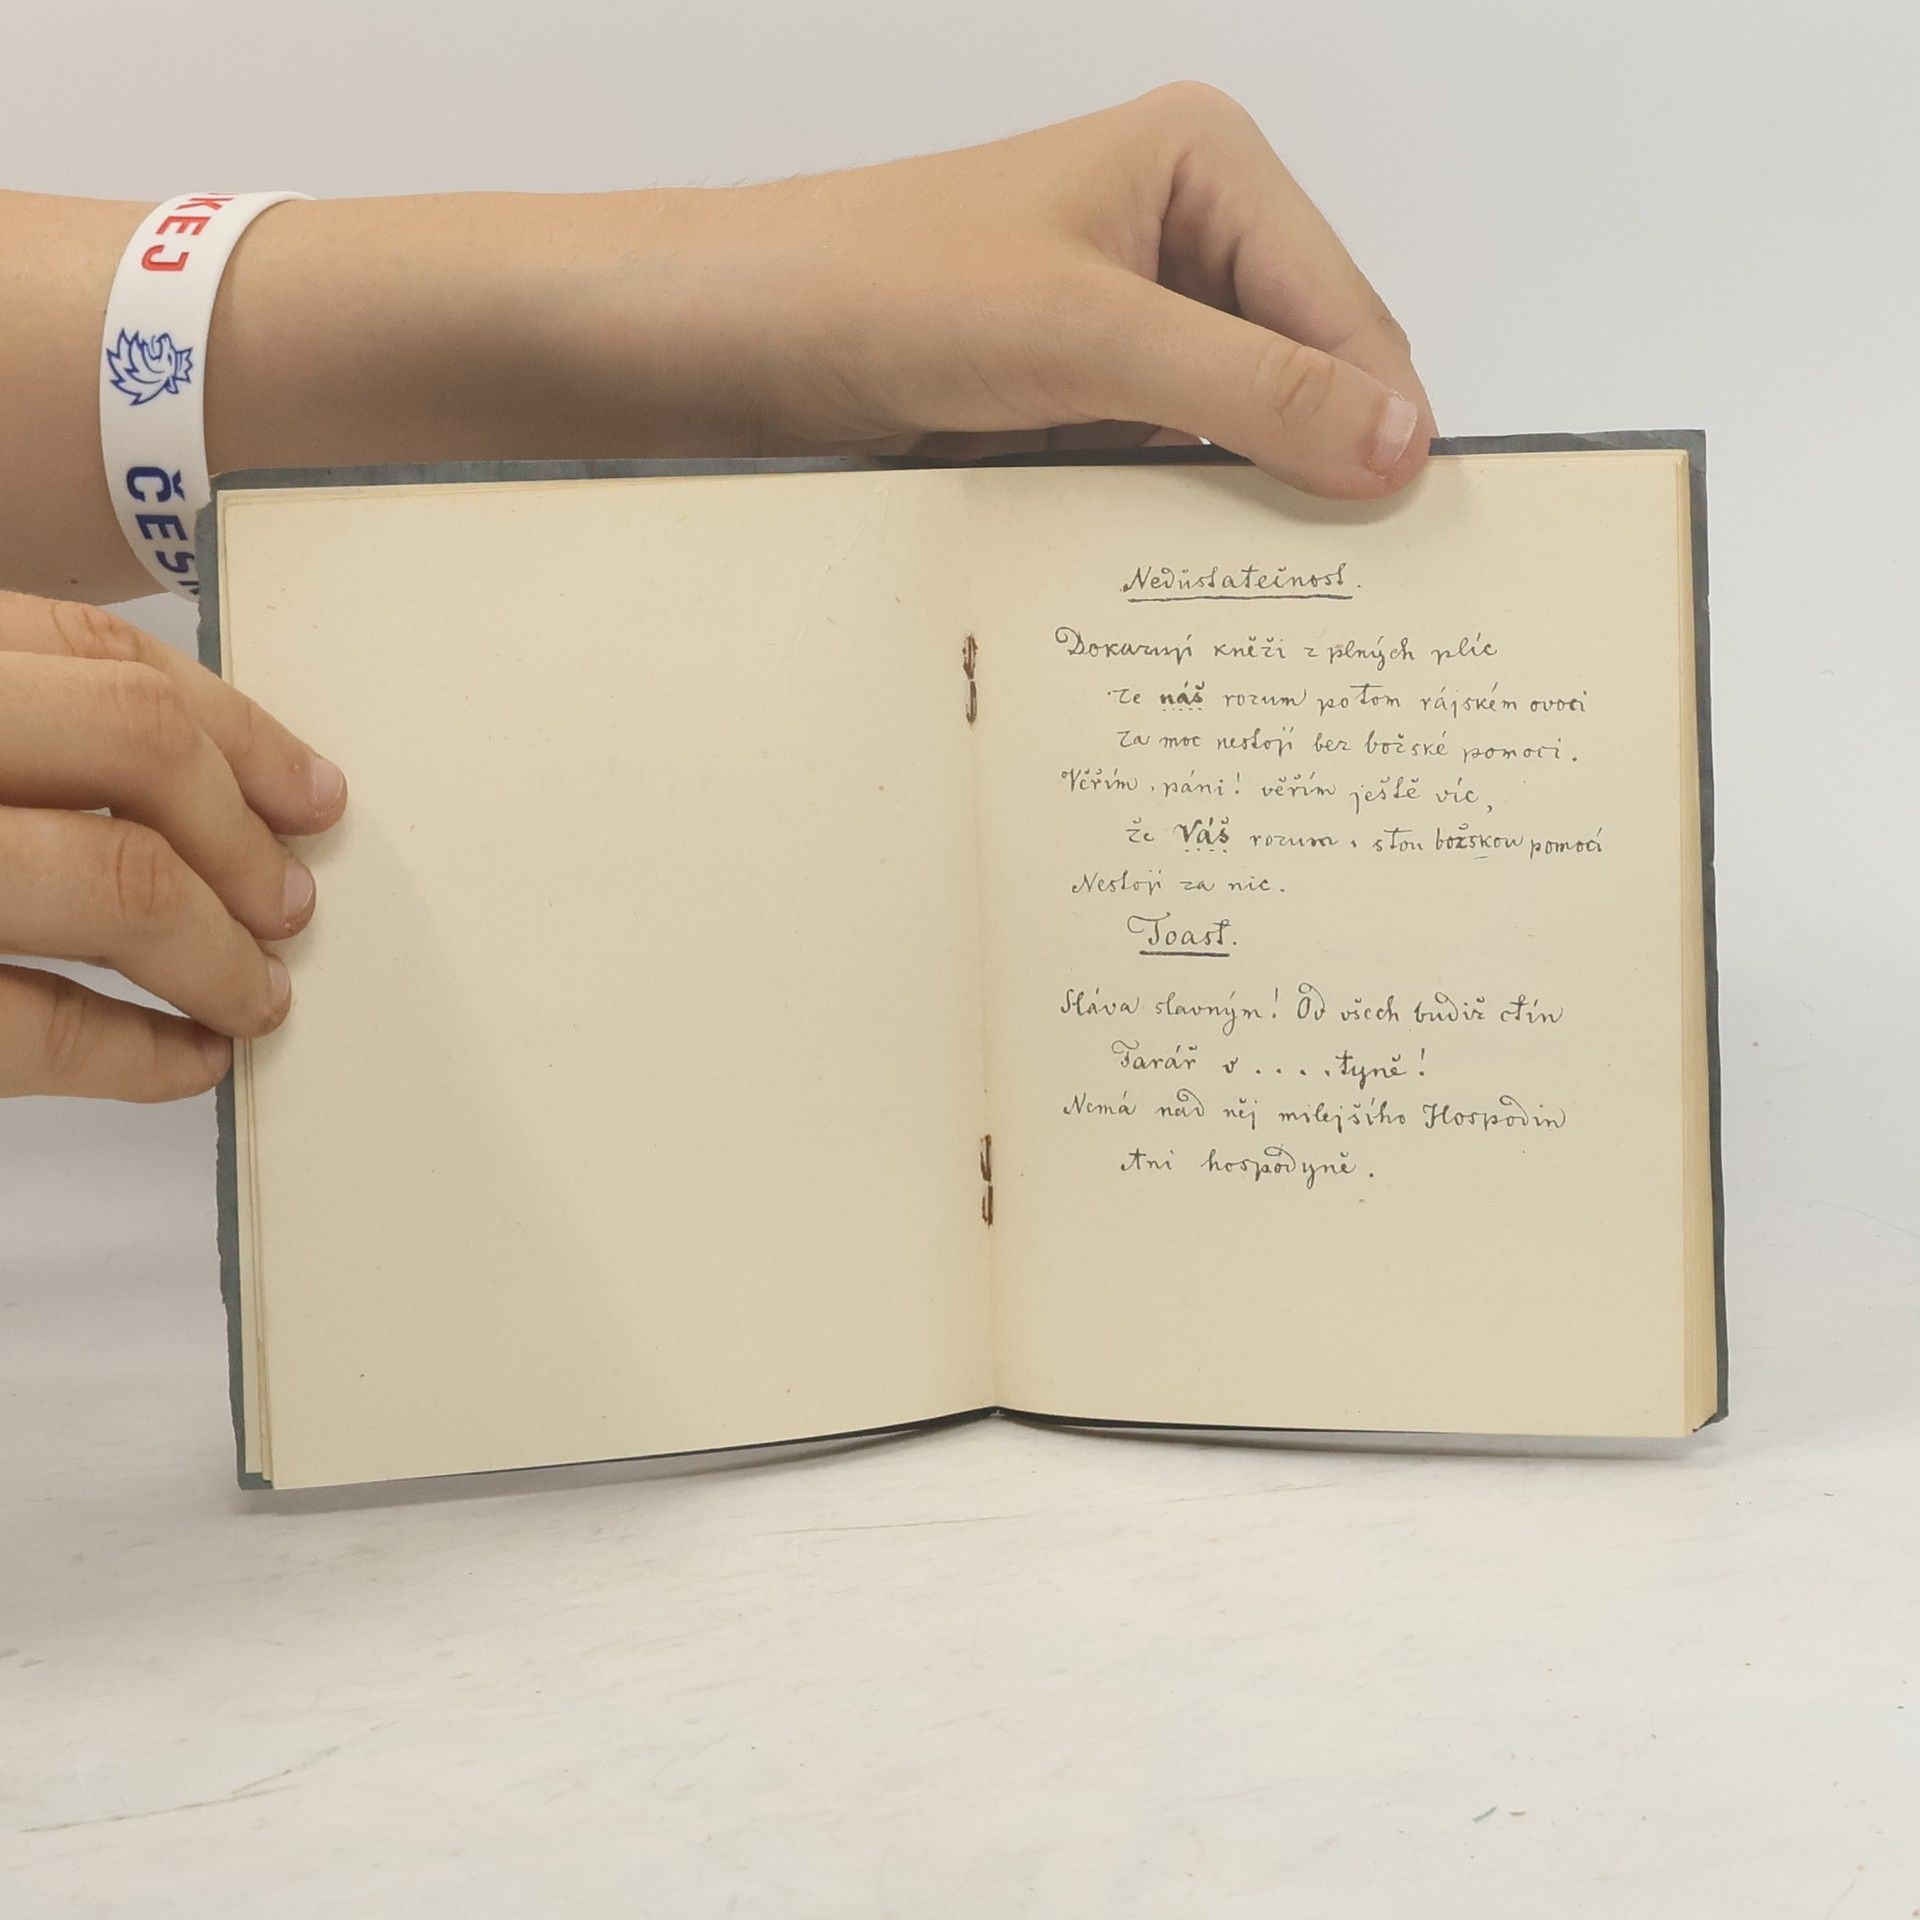 OKEJ
ČESK
Nedůslatečnost.
Dokazují kněži z plných plic
ze náš rozum potom rájském ovoci
za moc nestojí bez božské pomoci.
Věřím, páni! věřím ještě víc,
že Váš rozum, s tou božskou pomocí
Nestojí za nic.
Toast.
Sláva slavným! Od všech budiž ctín
Farář v . . . . tyně!
Nemá nad něj milejšího Hospodin
Ani hospodyně.